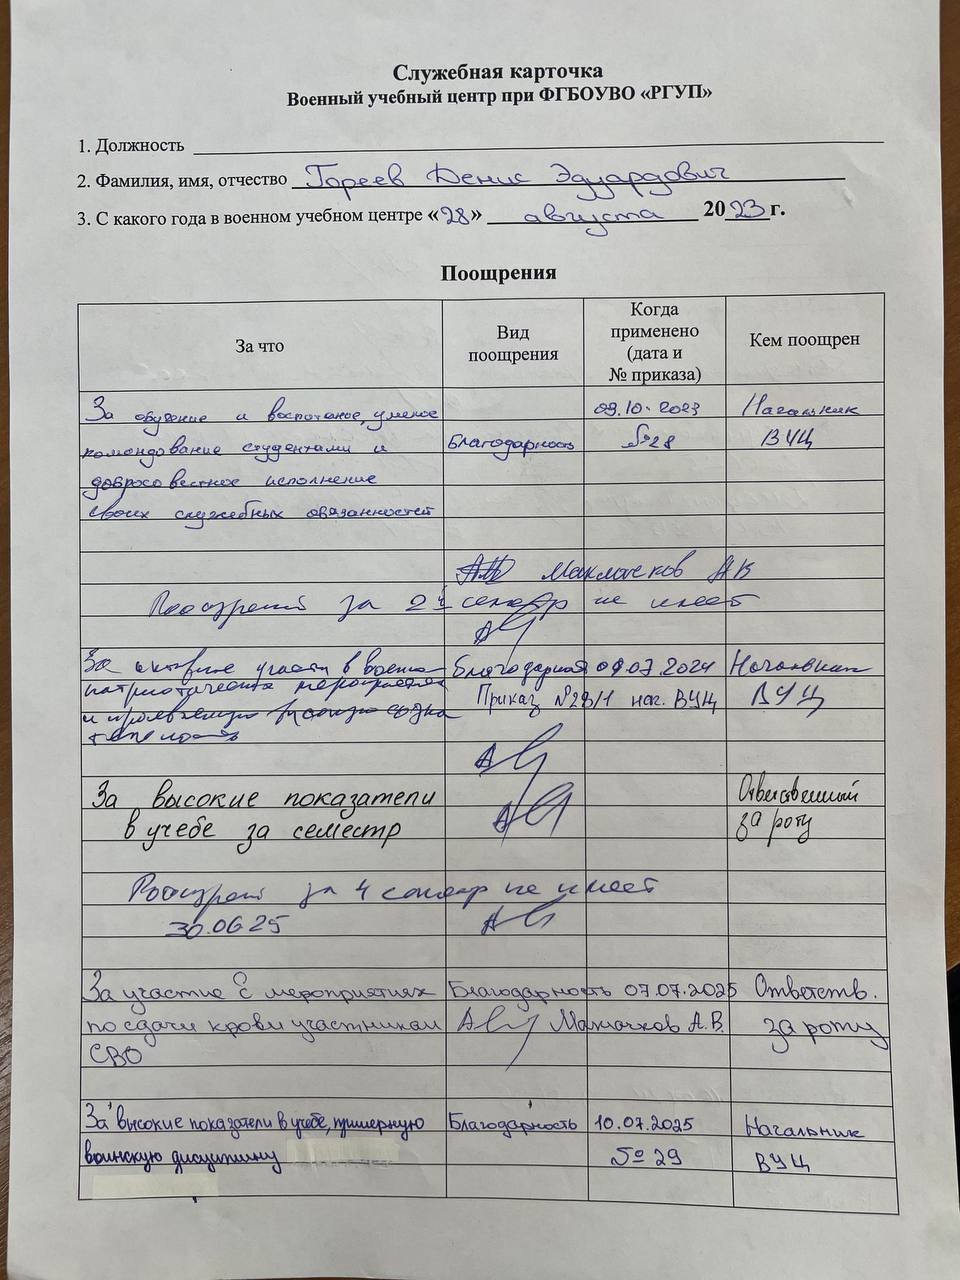 Служебная карточка
Военный учебный центр при ФГБОУВО «РГУП»
1. Должность
2. Фамилия, имя, отчество Гореев Денис Эдуардович
3. С какого года в военном учебном центре «28» августа 2023 г.
Поощрения
За что
Вид поощрения
Когда применено (дата и № приказа)
Кем поощрен
За обучение и воспитание, умелое 09.10.2023 Начальник
командование студентами и Благодарность №28 ВУЦ
добросовестное исполнение
своих служебных обязанностей
АВ
Поощрений за 2й семестр не имеет
За активное участие в военно Благодарность 09.07.2024 Начальник
патриотических мероприятиях Приказ №28/1 нач. ВУЦ ВУЦ
и
За высокие показатели Ответственный
в учебе за семестр за роту
Поощрений за 4 семестр не имеет
30.06.25
За участие в мероприятиях Благодарность 07.07.2025 Ответств.
по сдачи крови участникам А.В. за роту
СВО
За высокие показатели в учебе, примерную Благодарность 10.07.2025 Начальник
воинскую дисциплину № 29 ВУЦ